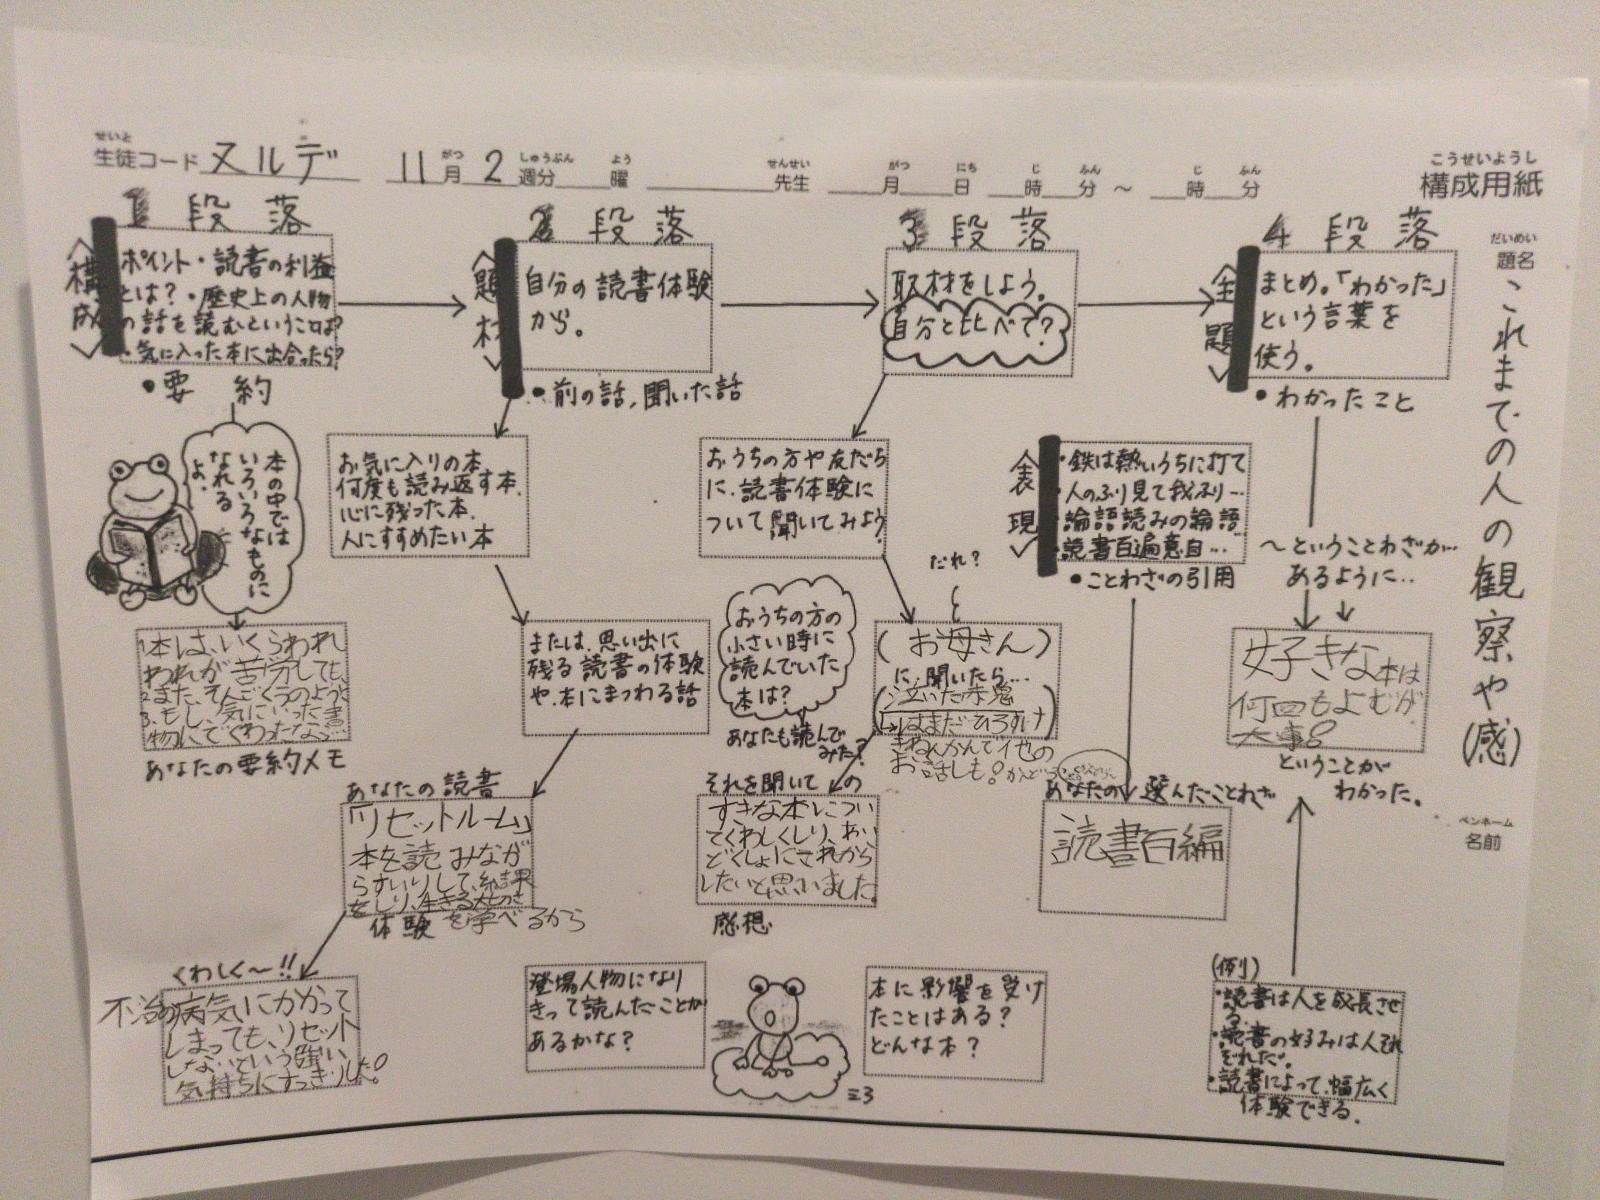 せいと
生徒コード ヌルデ 11月 2週分 曜 先生 月 日 時 分 ～ 時 分
がつ しゅうぶん よう せんせい がつ にち じ ふん じ ふん
こうせいようし
構成用紙
だいめい
題名
これまでの人の観察や(感)
ペンネーム
名前
1段落
〈構成〉
ポイント・読書の利益
とは?・歴史上の人物
の話を読むということは?
・気に入った本に出合ったら?
・要約
本の中では
いろいろなものに
なれる
よ.
1本は、いくらわれ
われが苦労しても、
2.また、そんごくうのように
3.もし、気にいった書
物にでくわったなら…
あなたの要約メモ
2段落
〈題材〉
自分の読書体験
から。
・前の話,聞いた話
お気に入りの本
何度も読み返す本.
心に残った本.
人にすすめたい本
または、思い出に
残る読書の体験
や、本にまつわる話
あなたの読書
「リセットルーム」
本を読みなが
らすいりして、結果
をしり、生きる
を学べるから
体験
くわしく〜!!
不治の病気にかかって
しまっても、リセット
しないという強い
気持ちにすっきりした!
登場人物になり
きって読んだことが
あるかな?
3段落
取材をしよう。
自分と比べて?
おうちの方や友だち
に、読書体験に
ついて聞いてみよう
だれ?
(お母さん)
に、聞いたら…
(泣いた赤鬼)
↳はまだひろすけ
きねんかんで他の
お話しも!
おうちの方の
小さい時に
読んでいた
本は?
あなたも読んで
みた?
それを聞いての
すきな本につい
てくわしくしり、
どくしょにこれから
したいと思いました。
感想
本に影響を受け
たことはある?
どんな本?
4段落
〈主題〉
まとめ。「わかった」
という言葉を
使う。
・わかったこと
〈表現〉
・鉄は熱いうちに打て
・人のふり見て我ふり…
・論語読みの論語
・読書百遍意自…
・ことわざの引用
あなたの選んだことわざ
読書百編
〜ということわざが…
あるように…
好きな本は
何回もよむが
大事!
ということが
わかった。
(例)
・読書は人を成長させ
る.
・読書の好みは人それ
ぞれだ.
・読書によって、幅広く
体験できる.